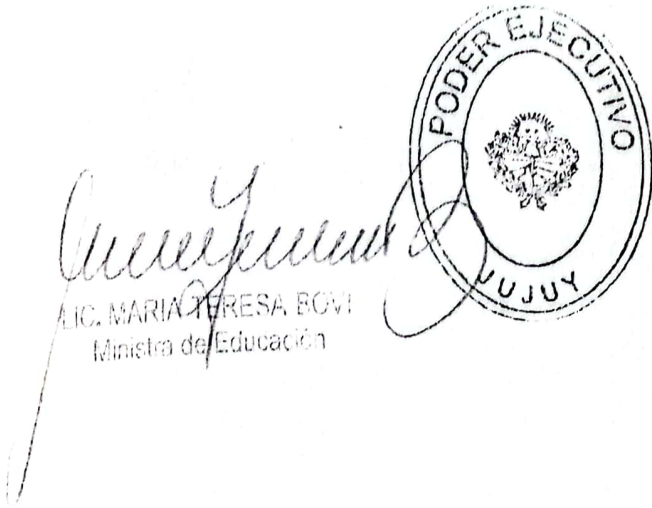 PODER EJECUTIVO
JUJUY
LIC. MARIA TERESA BOVI
Ministra de Educación